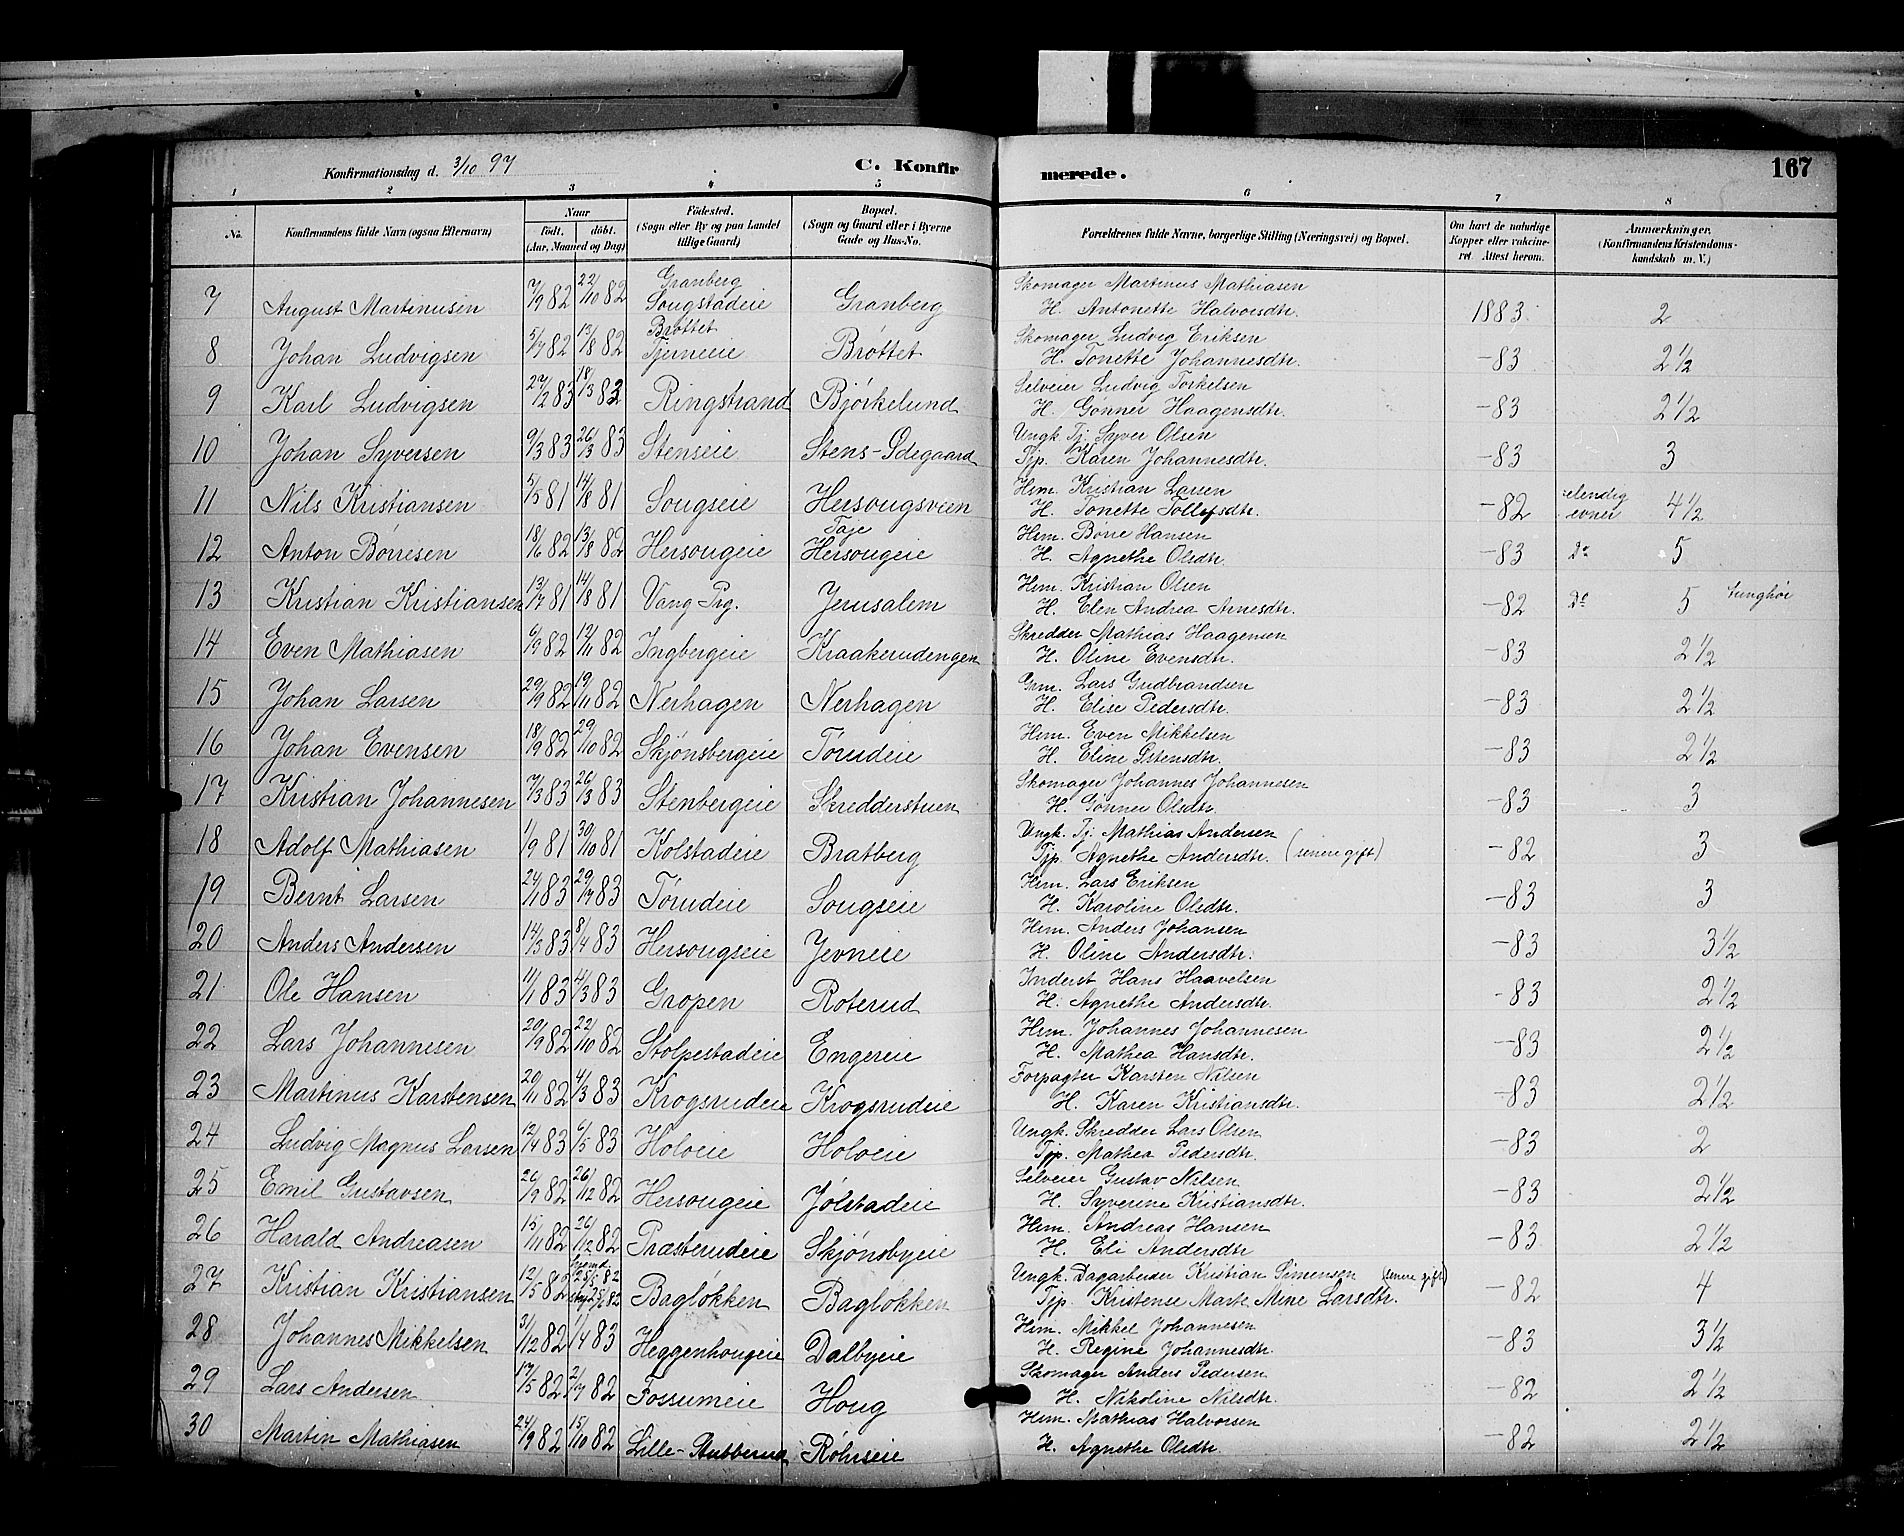 Konfirmationsdag d. 3/10 97 C. Konfirmerede. 167
1 2 3 4 5 6 7 8
No. Konfirmandens fulde Navn (ogsaa Efternavn) Naar født. døbt. (Aar, Maaned og Dag) Fødested. (Sogn eller By og paa Landet tillige Gaard) Bopæl. (Sogn og Gaard eller i Byerne Gade og Hus-No. Forældrenes fulde Navne, borgerlige Stilling (Næringsvei) og Bopæl. Om havt de naturlige Kopper eller vakcineret. Attest herom. Anmærkninger. (Konfirmandens Kristendomskundskab m. V.)
Granberg Skomager Martinus Mathiasen
7 August Martinusen 7/9 82 22/10 82 Sougstadeie Granberg H. Antonette Halvorsdtr. 1883 2
Brøttet Skomager Ludvig Eriksen
8 Johan Ludvigsen 5/7 82 13/8 82 Tjerneie Brøttet H. Tonette Johannesdtr. -83 2 1/2
Selveier Ludvig Torkelsen
9 Karl Ludvigsen 27/2 83 18/3 83 Ringstrand Bjørkelund H. Gønner Haagensdtr. -83 2 1/2
Ungk. Tj. Syver Olsen
10 Johan Syversen 9/3 83 26/3 83 Stenseie Stens-Ødegaard Tjp. Karen Johannesdtr. -83 3
Hrm. Kristian Larsen elendig
11 Nils Kristiansen 5/5 81 14/8 81 Sougseie Hersougsveien H. Tonette Tollefsdtr. -82 evner 4 1/2
Taje Hrm. Børre Hansen
12 Anton Børresen 18/6 82 13/8 82 Hersougeie Hersougeie H. Agnethe Olsdtr. -83 Do 5
Hrm. Kristian Olsen
13 Kristian Kristiansen 13/7 81 14/8 81 Vang Prg. Jerusalem H. Elen Andrea Arnesdtr. -82 Do 5 tunghør
Skredder Mathias Haagensen
14 Even Mathiasen 6/9 82 12/11 82 Ingbergeie Kraakerudengen H. Oline Evensdtr. -83 2 1/2
Grm. Lars Gudbrandsen
15 Johan Larsen 29/9 82 19/11 82 Nerhagen Nerhagen H. Elise Pedersdtr. -83 2 1/2
Hrm. Even Mikkelsen
16 Johan Evensen 18/9 82 29/10 82 Skjønsbergeie Tørudeie H. Eline Østensdtr. -83 2 1/2
Skomager Johannes Johannesen
17 Kristian Johannesen 7/3 83 26/3 83 Stenbergeie Skredderstuen H. Gønner Olsdtr. -83 3
Ungk. Tj. Mathias Andersen
18 Adolf Mathiasen 1/9 81 30/10 81 Kolstadeie Bratberg Tjp. Agnethe Andersdtr. (senere gift) -82 3
Hrm. Lars Eriksen
19 Bernt Larsen 24/1 83 29/7 83 Tørudeie Sougseie H. Karoline Olsdtr. -83 3
Hrm. Anders Johansen
20 Anders Andersen 14/3 83 8/4 83 Hersougseie Jevneie H. Oline Andersdtr. -83 3 1/2
Inderst Hans Haavelsen
21 Ole Hansen 11/1 83 4/3 83 Gropen Roterud H. Agnethe Andersdtr. -83 2 1/2
Hrm. Johannes Johannesen
22 Lars Johannesen 20/9 82 22/10 82 Stolpestadeie Engereie H. Mathea Hansdtr. -83 2 1/2
Forpagter Karsten Nilsen
23 Martinus Karstensen 20/11 82 4/3 83 Krogsrudeie Krogsrudeie H. Karen Kristiansdtr. -83 2 1/2
Ungk. Skredder Lars Olsen
24 Ludvig Magnus Larsen 12/4 83 6/5 83 Holoeie Holoeie Tjp. Mathea Pedersdtr. -83 2
Selveier Gustav Nilsen
25 Emil Gustavsen 26/9 82 26/12 82 Hersougeie Jølstadeie H. Syverine Kristiansdtr. -83 2 1/2
Hrm. Andreas Hansen
26 Harald Andreasen 15/11 82 26/12 82 Præsterudeie Skjønsbyeie H. Eli Andersdtr -83 2 1/2
hjemd. 25/5 82 Ungk. Dagarbeider Kristian Simensen (senere gift)
27 Kristian Kristiansen 12/5 82 Bagløkken Bagløkken Tjp. Kristense Marte Mine Larsdtr. -82 4
Hrm. Mikkel Johannesen
28 Johannes Mikkelsen 31/12 82 1/4 83 Heggenhougeie Dalbyeie H. Regine Johannesdtr. -83 3 1/2
Skomager Anders Pedersen
29 Lars Andersen 17/5 82 2/7 82 Fossumeie Houg H. Nikoline Nilsdtr. -82 2 1/2
Hrm. Mathias Halvorsen
30 Martin Mathiasen 24/9 82 15/10 82 Lille-Stubberud Røhrseie H. Agnethe Olsdtr. -82 2 1/2